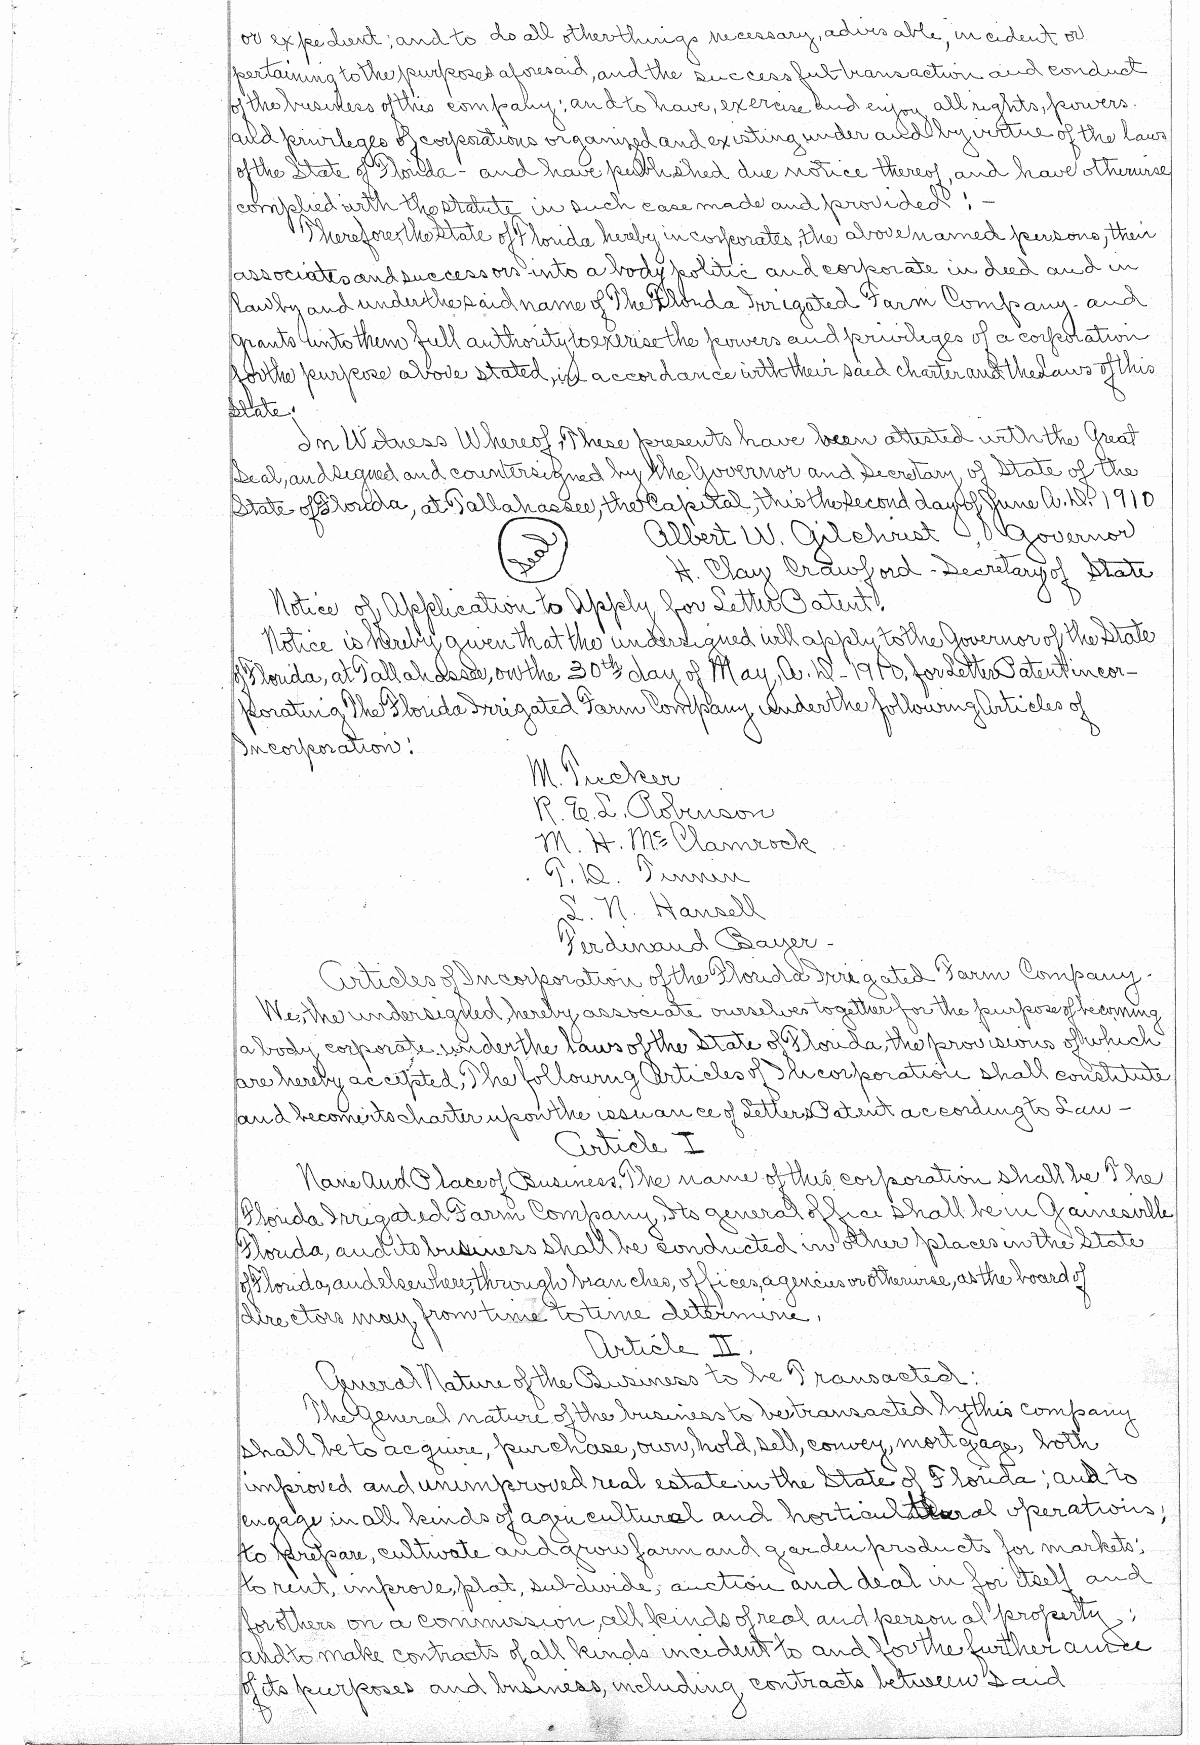 or expedient; and to do all other things necessary, advisable, incident or
pertaining to the purposes aforesaid, and the successful transaction and conduct
of the business of this company; and to have, exercise and enjoy all rights, powers
and privileges of corporations organized and existing under and by virtue of the laws
of the State of Florida - and have published due notice thereof, and have otherwise
complied with the statute in such case made and provided! : -
Therefore, the State of Florida hereby incorporates, the above named persons, their
associates and successors into a body politic and corporate in deed and in
law by and under the said name of The Florida Irrigated Farm Company - and
grants unto them full authority to exercise the powers and privileges of a corporation
for the purpose above stated, in accordance with their said charter and the Laws of this
State.
In Witness Whereof, These presents have been attested with the Great
Seal, and signed and countersigned by the Governor and Secretary of State of the
State of Florida, at Tallahassee, the Capital, this the second day of June A.D. 1910
Seal
Albert W. Gilchrist, Governor
H. Clay Crawford - Secretary of State
Notice of Application to Apply for Letters Patent.
Notice is hereby given that the undersigned will apply to the Governor of the State
of Florida, at Tallahassee, on the 30th day of May, A.D. 1910, for Letters Patent incor-
porating The Florida Irrigated Farm Company under the following Articles of
Incorporation:
M. Tucker
R. E. L. Robinson
M. H. McClamrock
T. D. Tinnin
L. N. Hansell
Ferdinand Bayer -
Articles of Incorporation of the Florida Irrigated Farm Company -
We, the undersigned, hereby associate ourselves together for the purpose of becoming
a body corporate under the laws of the State of Florida, the provisions of which
are hereby accepted; The following Articles of Incorporation shall constitute
and become its charter upon the issuance of Letters Patent according to Law -
Article I
Name And Place of Business. The name of this corporation shall be The
Florida Irrigated Farm Company, Its general office shall be in Gainesville
Florida, and its business shall be conducted in other places in the State
of Florida, and elsewhere, through branches, offices, agencies or otherwise, as the board of
directors may, from time to time determine.
Article II.
General Nature of the Business to be Transacted:
The General nature of the business to be transacted by this company
shall be to acquire, purchase, own, hold, sell, convey, mortgage, both
improved and unimproved real estate in the State of Florida; and to
engage in all kinds of agricultural and horticultural operations;
to prepare, cultivate and grow farm and garden products for markets;
to rent, improve, plat, sub-divide, auction and deal in for itself and
for others on a commission, all kinds of real and personal property;
and to make contracts of all kinds incident to and for the furtherance
of its purposes and business, including contracts between said